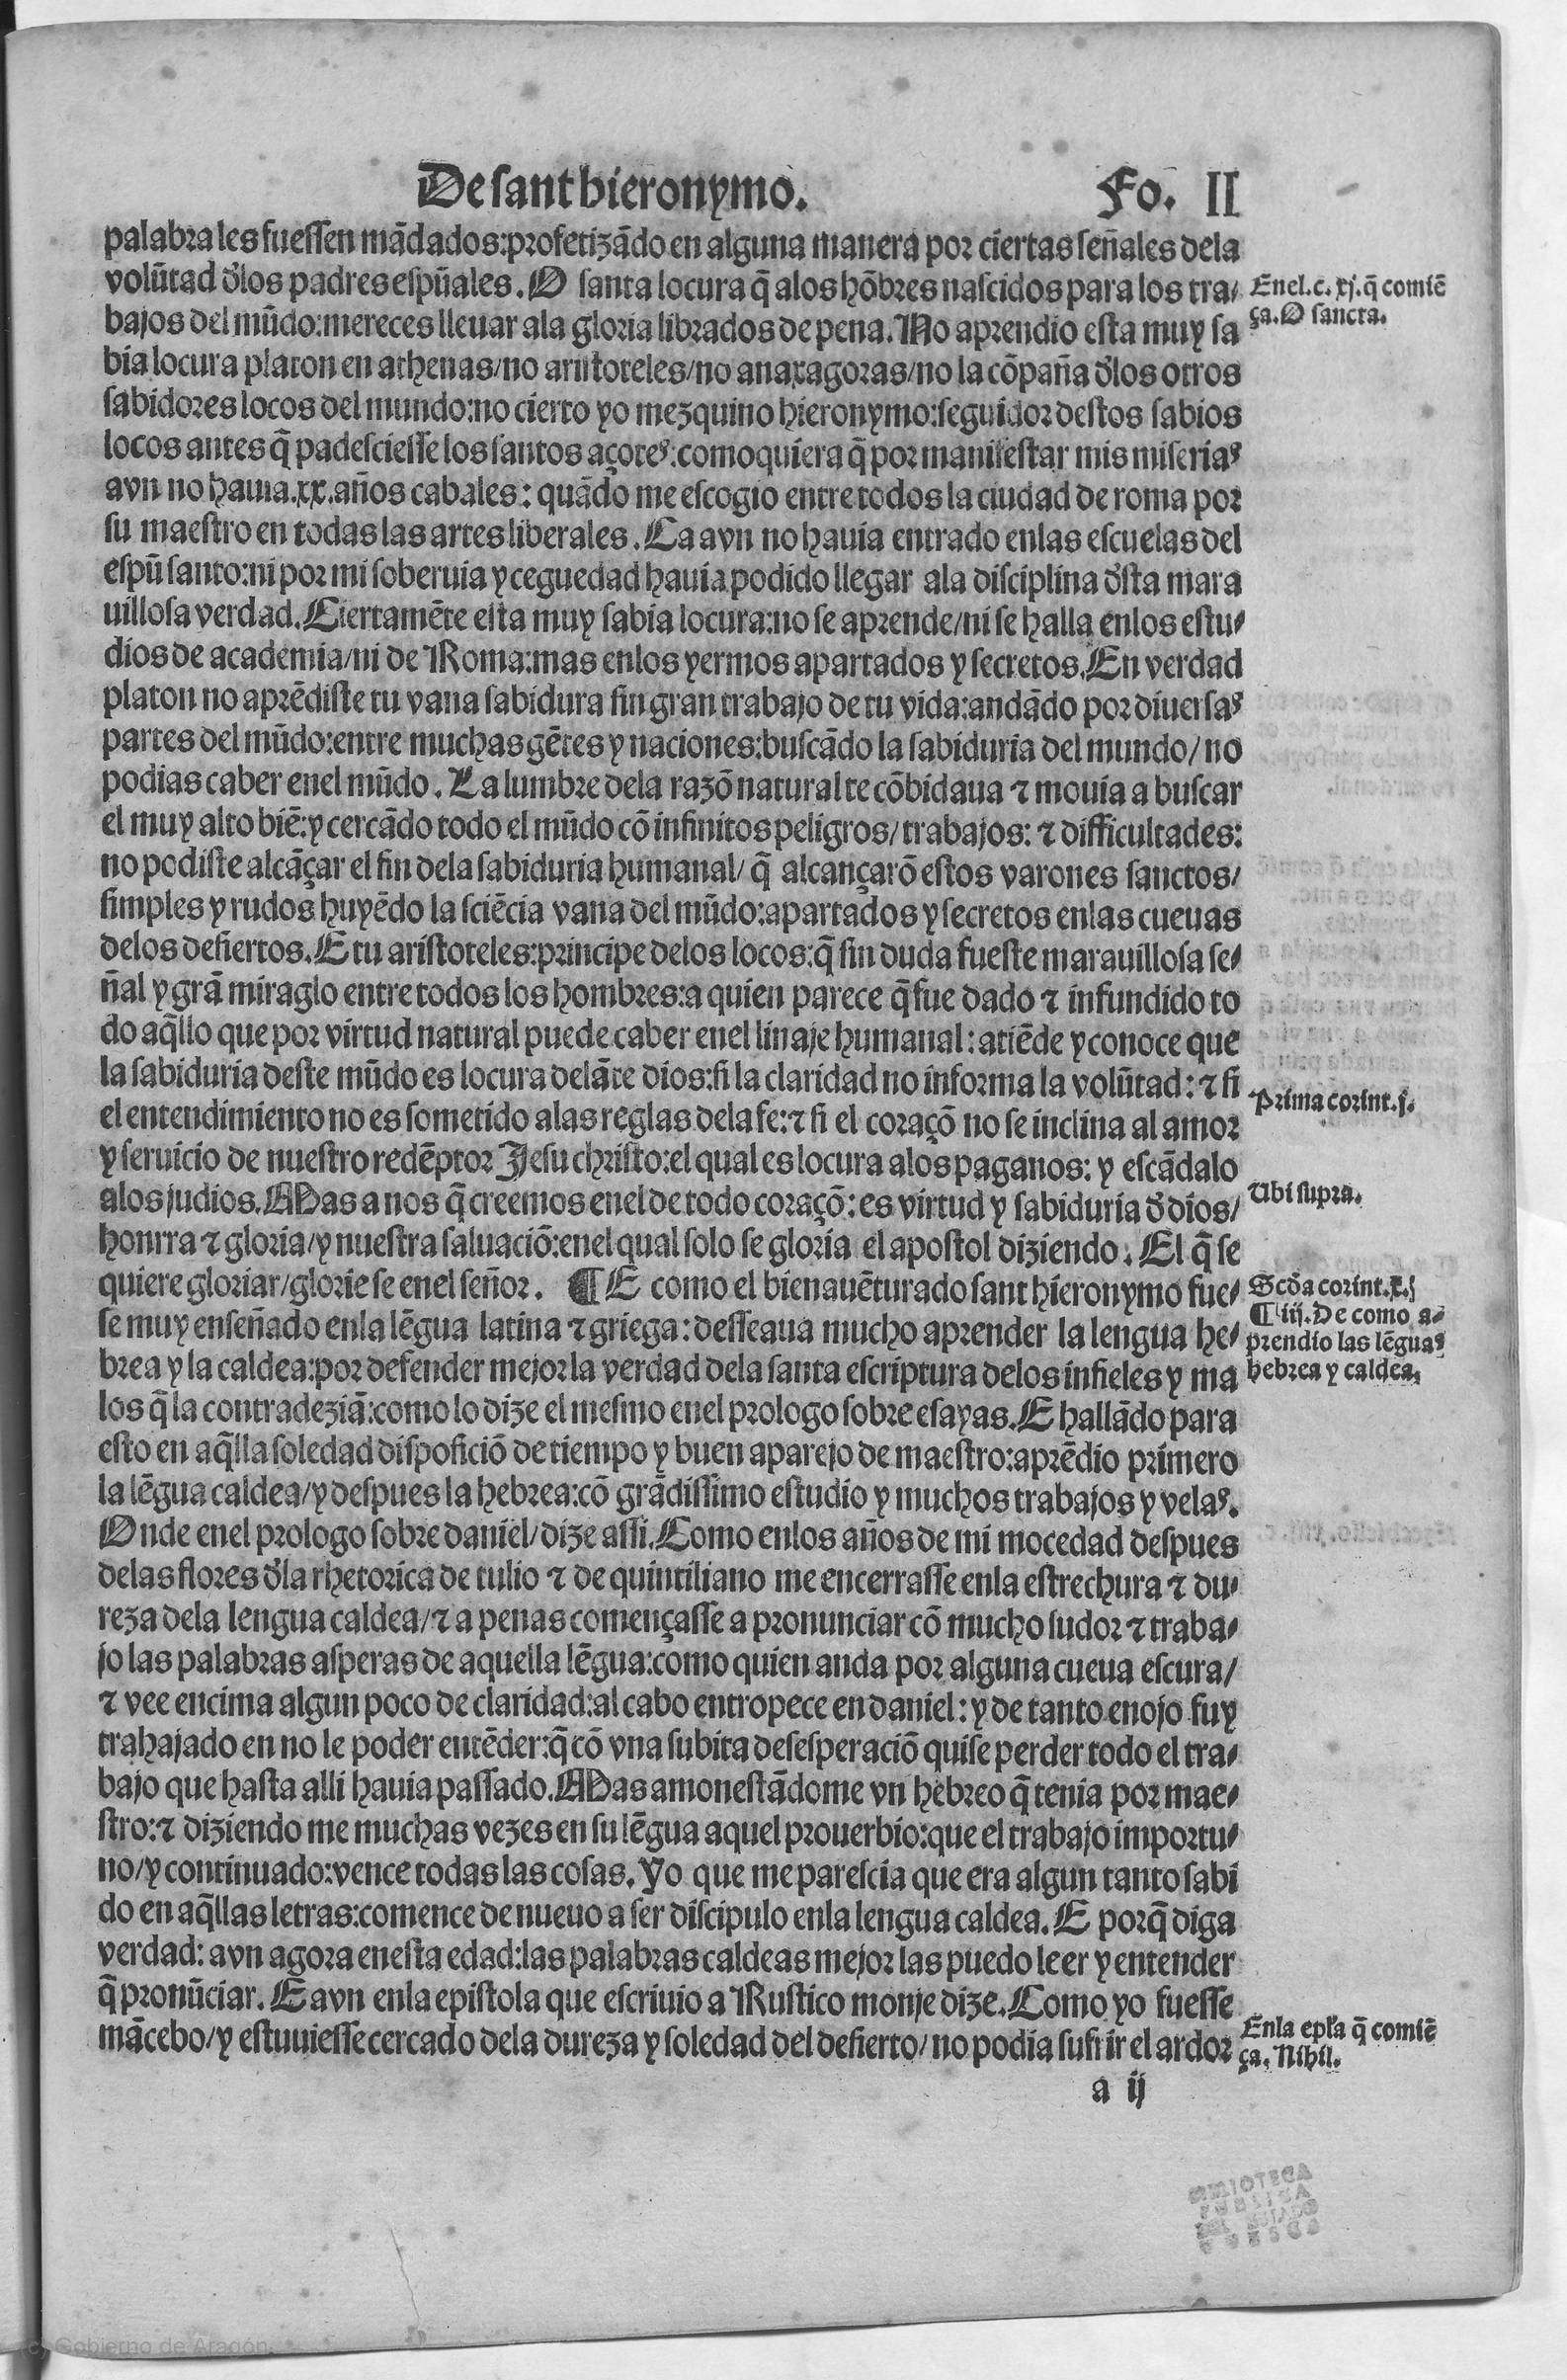 De sant hieronymo. Fo. II
palabra les fuessen mãdados: profetizãdo en alguna manera por ciertas señales dela
volũtad d'los padres espũales. O santa locura q̃ alos hõbres nascidos para los tra-
bajos del mũdo: mereces lleuar ala gloria librados de pena. No aprendio esta muy sa
bia locura platon en athenas/ no aristoteles/ no anaxagoras/ no la cõpaña d'los otros
sabidores locos del mundo: no cierto yo mezquino hieronymo: seguidor destos sabios
locos antes q̃ padesciesse los santos açotes: comoquiera q̃ por manifestar mis miserias
avn no hauia.xx.años cabales: quãdo me escogio entre todos la ciudad de roma por
su maestro en todas las artes liberales. Ca avn no hauia entrado enlas escuelas del
espũ santo: ni por mi soberuia y ceguedad hauia podido llegar ala disciplina d'sta mara
uillosa verdad. Ciertamẽte esta muy sabia locura: no se aprende/ ni se halla enlos estu-
dios de academia/ ni de Roma: mas enlos yermos apartados y secretos. En verdad
platon no aprẽdiste tu vana sabidura sin gran trabajo de tu vida: andãdo por diuersas
partes del mũdo: entre muchas gẽtes y naciones: buscãdo la sabiduria del mundo/ no
podias caber enel mũdo. La lumbre dela razõ natural te cõbidaua ⁊ mouia a buscar
el muy alto biẽ: y cercãdo todo el mũdo cõ infinitos peligros/ trabajos: ⁊ difficultades:
no podiste alcãçar el fin dela sabiduria humanal/ q̃ alcançarõ estos varones sanctos/
simples y rudos huyẽdo la sciẽcia vana del mũdo: apartados y secretos enlas cueuas
delos desiertos. E tu aristoteles: principe delos locos: q̃ sin duda fueste marauillosa se-
ñal y grã miraglo entre todos los hombres: a quien parece q̃ fue dado ⁊ infundido to
do aq̃llo que por virtud natural puede caber enel linaje humanal: atiẽde y conoce que
la sabiduria deste mũdo es locura delãte dios: si la claridad no informa la volũtad: ⁊ si
el entendimiento no es sometido alas reglas dela fe: ⁊ si el coraçõ no se inclina al amor
y seruicio de nuestro redẽptor Jesu christo: el qual es locura alos paganos: y escãdalo
alos judios. Mas a nos q̃ creemos enel de todo coraçõ: es virtud y sabiduria d' dios/
honrra ⁊ gloria/ y nuestra saluaciõ: enel qual solo se gloria el apostol diziendo. El q̃ se
quiere gloriar/ glorie se enel señor. ¶ E como el bienauẽturado sant hieronymo fue-
se muy enseñado enla lẽgua latina ⁊ griega: desseaua mucho aprender la lengua he-
brea y la caldea: por defender mejor la verdad dela santa escriptura delos infieles y ma
los q̃ la contradeziã: como lo dize el mesmo enel prologo sobre esayas. E hallãdo para
esto en aq̃lla soledad disposiciõ de tiempo y buen aparejo de maestro: aprẽdio primero
la lẽgua caldea/ y despues la hebrea: cõ grãdissimo estudio y muchos trabajos y velas.
Onde enel prologo sobre daniel/ dize assi. Como enlos años de mi mocedad despues
delas flores d'la rhetorica de tulio ⁊ de quintiliano me encerrasse enla estrechura ⁊ du-
reza dela lengua caldea/ ⁊ a penas començasse a pronunciar cõ mucho sudor ⁊ traba-
jo las palabras asperas de aquella lẽgua: como quien anda por alguna cueua escura/
⁊ vee encima algun poco de claridad: al cabo entropece en daniel: y de tanto enojo fuy
trabajado en no le poder entẽder: q̃ cõ vna subita desesperaciõ quise perder todo el tra-
bajo que hasta alli hauia passado. Mas amonestãdome vn hebreo q̃ tenia por mae-
stro: ⁊ diziendo me muchas vezes en su lẽgua aquel prouerbio: que el trabajo importu-
no/ y continuado: vence todas las cosas. Yo que me parescia que era algun tanto sabi
do en aq̃llas letras: comence de nueuo a ser discipulo enla lengua caldea. E porq̃ diga
verdad: avn agora enesta edad: las palabras caldeas mejor las puedo leer y entender
q̃ pronũciar. E avn enla epistola que escriuio a Rustico monje dize. Como yo fuesse
mãcebo/ y estuuiesse cercado dela dureza y soledad del desierto/ no podia sufrir el ardor
a ij
Enel.c.xj.q̃ comiẽ
ça. O sancta.
Prima corint.j.
Ubi supra.
Scd'a corint.x.
¶ iij. De como a-
prendio las lẽguas
hebrea y caldea.
Enla epl'a q̃ comiẽ
ça. Nihil.
BIBLIOTECA
(c) Gobierno de Aragón